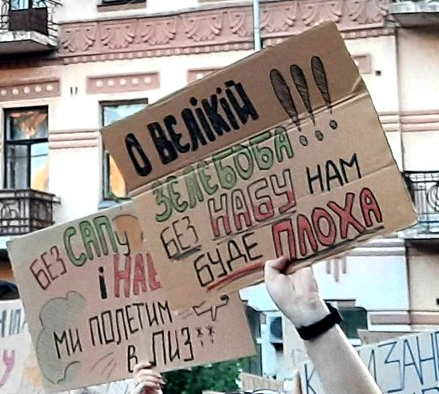 О ВЕЛІКІЙ !!!
ЗЕЛЕБОБА
БЕЗ НАБУ НАМ
БУДЕ ПЛОХА
БЕЗ САПУ
І НАБ
МИ ПОЛЕТИМ
В ПИЗ**